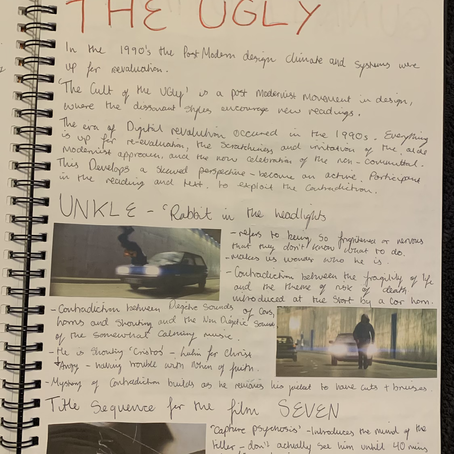 THE UGLY
In the 1990's the Post Modern design climate and systems were
up for revaluation.
'The Cult of the Ugly' is a post Modernist Movement in design,
where the dissonant styles encourage new readings.
The era of Digital revaluation occured in the 1990s. Everything
is up for re-evaluation, the Scratchiness and imitation of the
Modernist approach and the now celebration of the non-committal.
This Develops a skewed perspective - become an active Participant
in the reading and text, to exploit the contradiction.
UNKLE - 'Rabbit in the headlights
- refers to being so frightened or nervous
that they don't know what to do.
- makes us wonder who he is.
- Contradiction between the fragility of life
and the theme of risk of death
introduced at the Start by a Car horn.
- Contradiction between Diegetic Sounds of Cars,
horns and Shouting and the Non Diegetic Sounds
of the Somewhat Calming music.
- He is Shouting 'Cristos' - latin for Christ
- having trouble with Notion of faith.
- Mystery of Contradiction builds as he removes his jacket to have cuts + bruises.
Title Sequence for the film SEVEN
"Capture psychosis" - Introduces the mind of the
killer - don't actually see him until 40 mins